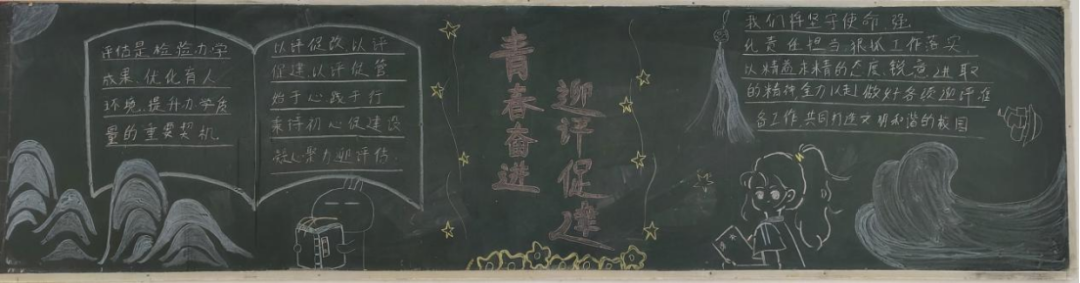 评估是检验办学
成果、优化育人
环境、提升办学质
量的重要契机。
以评促改以评
促建以评促管
始于心践于行
秉持初心促建设
聚力迎评估.
青春奋进
迎评促建
我们将坚守使命强
化责任担当,狠抓工作落实,
以精益求精的态度、锐意进取
的精神全力以赴做好各项迎评准
备工作共同打造文明和谐的校园